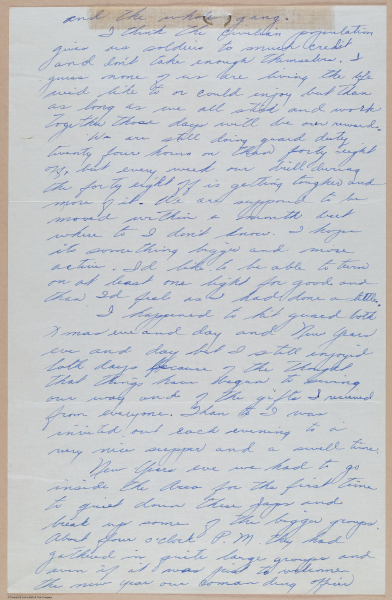 and the whole gang.
I think the civilian population
gives us soldiers to much credit
and don't take enough themselves. I
guess none of us are living the life
we'd like to or could enjoy but than
as long as we all stick and work
together those days will be our reward.
We are still doing guard duty
twenty four hours on than forty eight
off, but every week our drill during
the forty eight off is getting tougher and
more of it. We are suppose to be
moved within a month but
where to I don't know. I hope
its something bigger and more
active. I'd like to be able to turn
on at least one light for good and
than I'd feel as I had done a little.
I happened to hit guard both
Xmas eve and day and New Years
eve and day but I still enjoyed
both days because of the thought
that things have began to swing
our way and of the gifts I received
from everyone. Than to I was
invited out each evening to a
very nice supper and a swell time.
New Years eve we had to go
inside the Area for the first time
to quiet down these Japs and
break up some of the bigger groups.
About four o'clock P.M. they had
gathered in quite large groups and
even if it was just to welcome
the new year our commanding officer